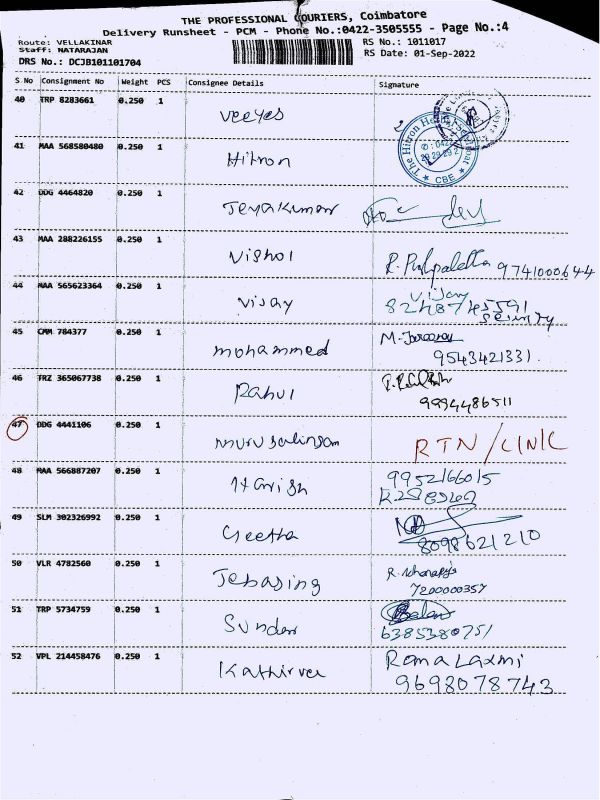 THE PROFESSIONAL COURIERS, Coimbatore
Delivery Runsheet - PCM - Phone No.:0422-3505555 - Page No.:4
Route: VELLAKINAR
Staff: NATARAJAN
DRS No.: DCJB101101704
RS No.: 1011017
RS Date: 01-Sep-2022
S No Consignment No Weight PCS Consignee Details Signature
40 TRP 8283661 0.250 1 Veeyes
41 MAA 568580480 0.250 1 Hitron
The Hitron
CBE
42 DDG 4464820 0.250 1 Jeyakumar
43 MAA 288226155 0.250 1 Vishal
9741000644
44 MAA 565623364 0.250 1 Vijay
Vijay
Security
45 CMM 784377 0.250 1 mohammed
M.
9543421331.
46 TRZ 365067738 0.250 1 Rahul
9994486511
47 DDG 4441106 0.250 1 RTN/CINIC
48 MAA 566887207 0.250 1 Harish
9952166015
49 SLM 302326992 0.250 1 Geetha
8098621210
50 VLR 4782560 0.250 1 Jebasing
7200000357
51 TRP 5734759 0.250 1 Sunder
6385380751
52 VPL 214458476 0.250 1 Kathirvel
Rama Laxmi
9698078743